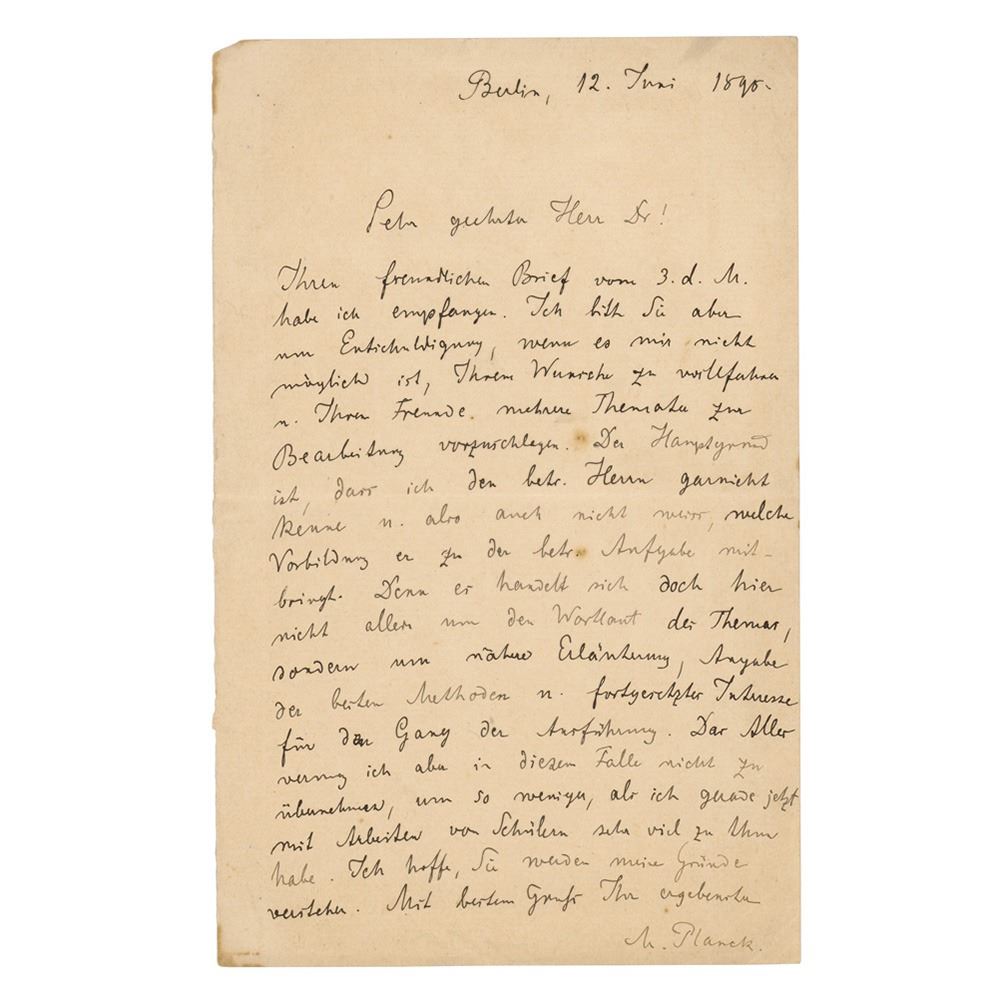 Berlin, 12. Juni 189
Sehr geehrter Herr Dr!
Ihren freundlichen Brief vom 3. d. M.
habe ich empfangen. Ich bitte Sie aber
um Entschuldigung, wenn es mir nicht
möglich ist, Ihrem Wunsche zu willfahren
u. Ihrem Freunde mehrere Themata zur
Bearbeitung vorzuschlagen. Der Hauptgrund
ist, dass ich den betr. Herrn garnicht
kenne u. also auch nicht weiss, welche
Vorbildung er zu der betr. Aufgabe mit-
bringt. Denn es handelt sich doch hier
nicht allein um den Wortlaut des Themas,
sondern um nähere Erläuterung, Angabe
der besten Methoden u. fortgesetztes Interesse
für den Gang der Ausführung. Das Alles
vermag ich aber in diesem Falle nicht zu
übernehmen, um so weniger, als ich gerade jetzt
mit Arbeiten von Schülern sehr viel zu thun
habe. Ich hoffe, Sie werden meine Gründe
verstehen. Mit bestem Gruss Ihr ergebenster
M. Planck.